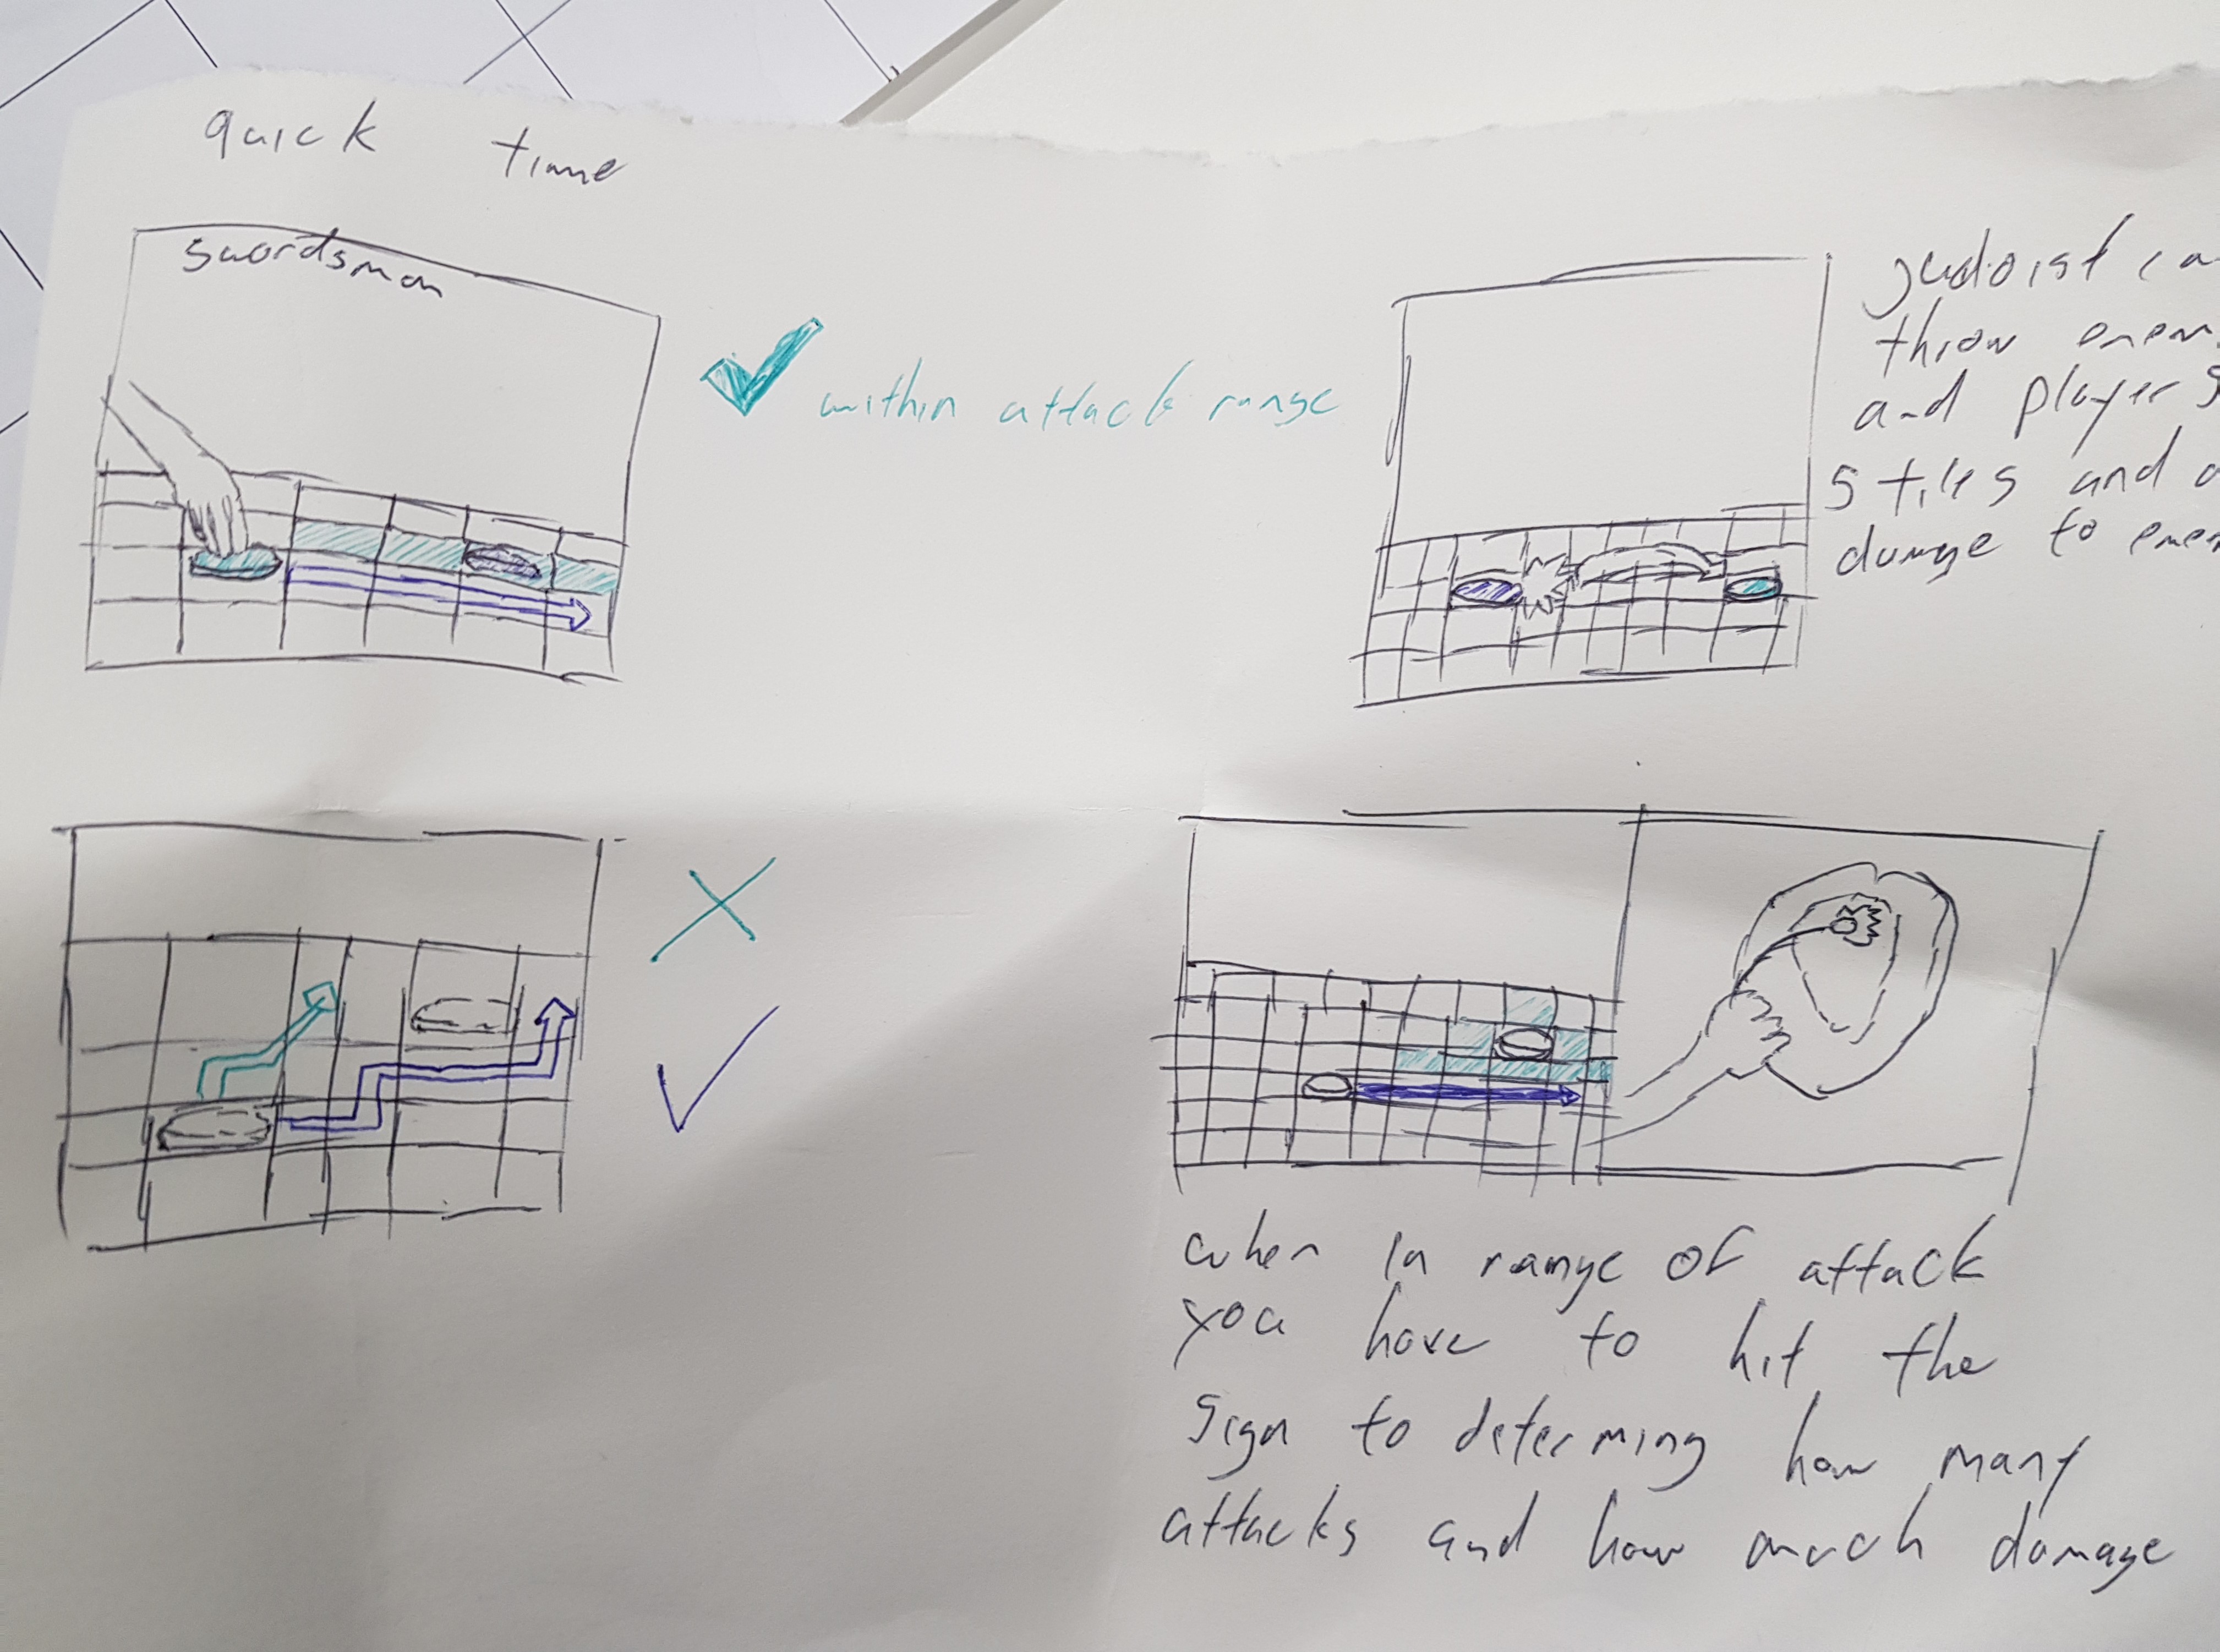 quick time
swordsman
within attack range
judoist
throw
and players
5 tiles and
damge to
when in range of attack
you have to hit the
sign to determing how many
attacks and how much damage